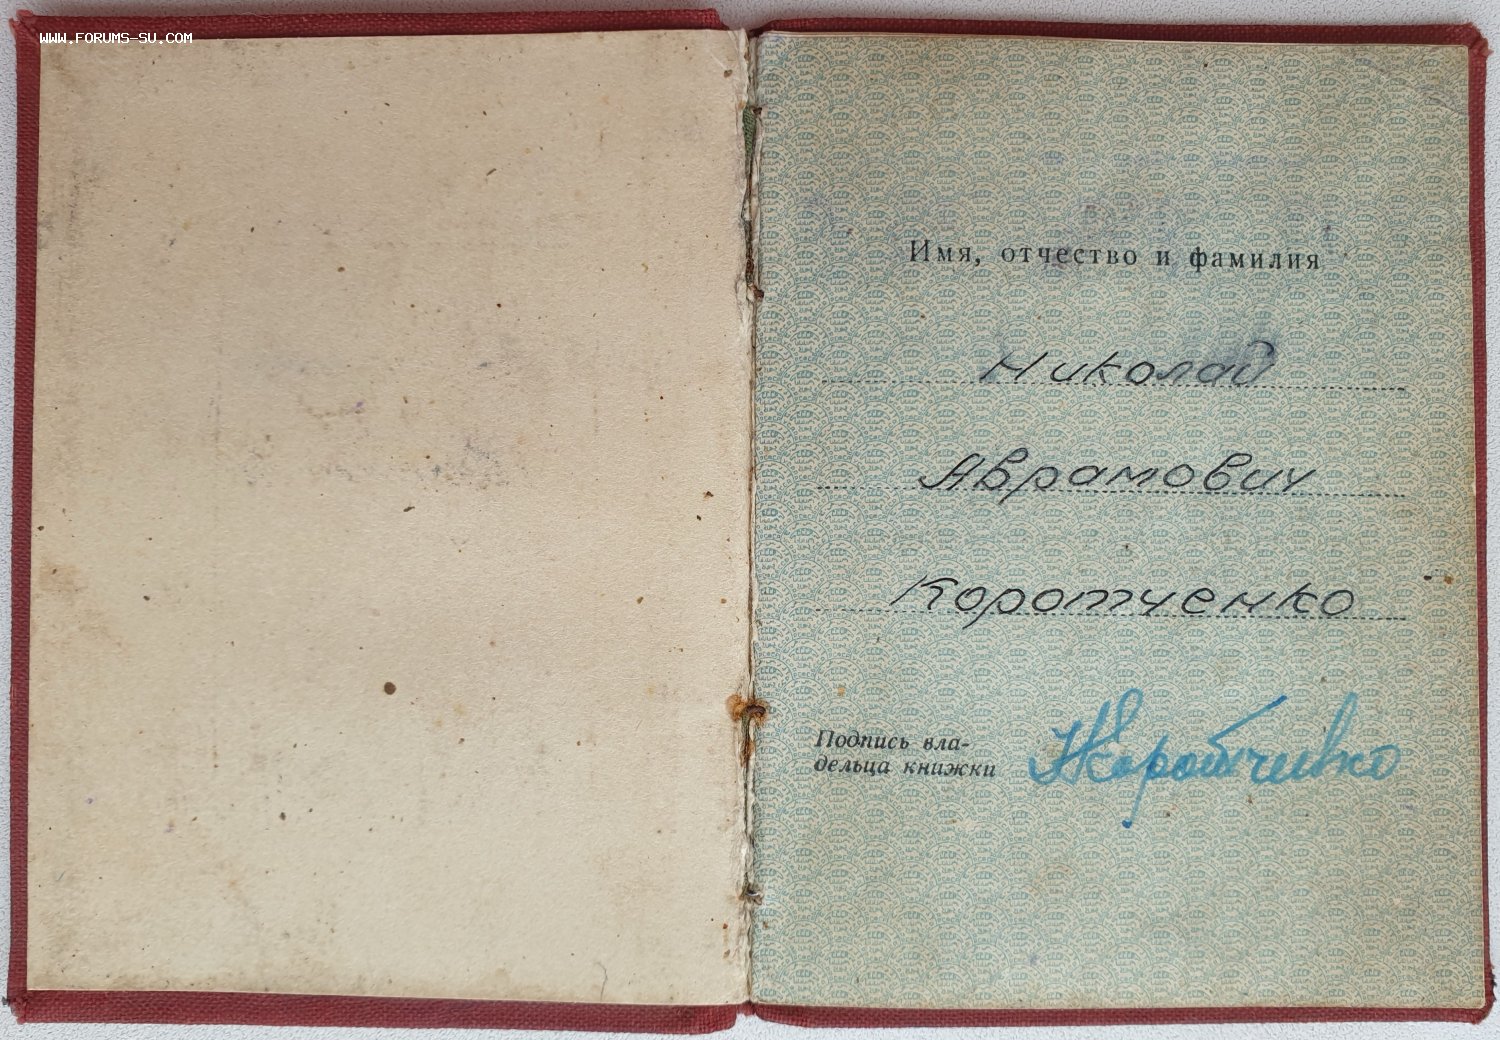 WWW.FORUMS-SU.COM
Имя, отчество и фамилия
Николай
Аврамович
Коротченко
Подпись вла-
дельца книжки
НКоротченко